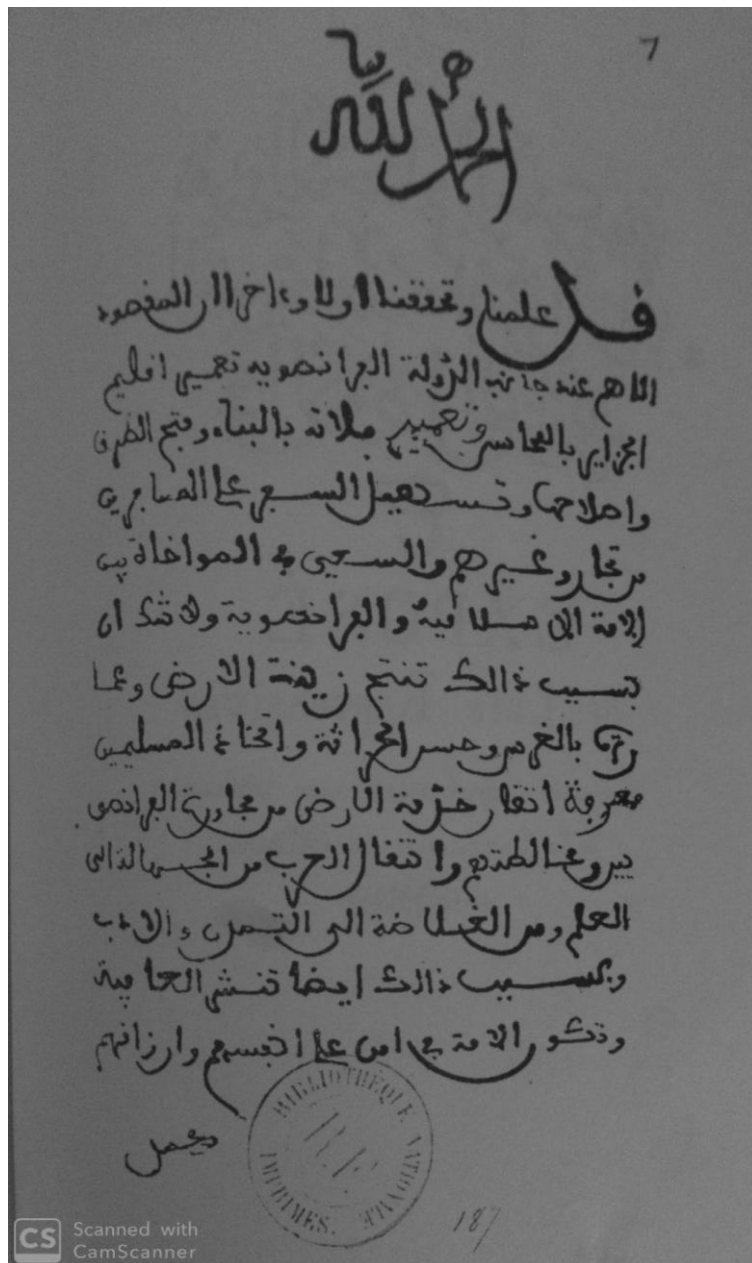 7
الحمد لله
قد علمنا وتحققنا اولا وءاخرا ان المقصود
الاهم عند جانب الدولة الفرانصويه تعمير اقليم
الجزاير بالمحاسن وتعمير بالبناء وفتح الطرق
واصلاحها وتسهيل السفر على المسافرين
من تجار وغيرهم والسعي في المواخاة بين
الامة الاسلامية والفرانصوية ولا شك ان
بسبب ذالك تنتج زينة الارض وعما
رتها بالغرس وحسن الحراثة واتخاذ المسلمين
معرفة اتقان خدمة الارض من مجاورة الفرانصو
يين ومخالطتهم وانتقال العرب من الجهل الى
العلم ومن الغلاضة الى التمدن والادب
وبسبب ذالك ايضا تنشر العافية
وتكون الامة في امن على انفسهم وارزاقهم
BIBLIOTHÈQUE NATIONALE
R.F.
IMPRIMÉS.
187
CS Scanned with
CamScanner